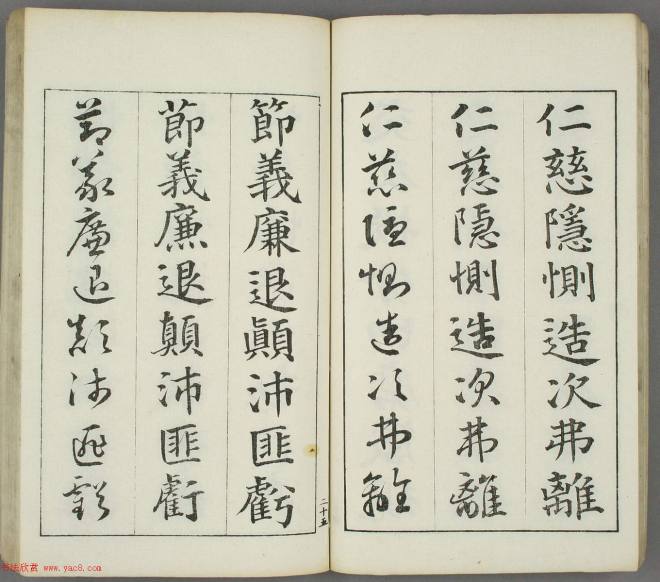 仁慈隱惻造次弗離
仁慈隱惻造次弗離
仁慈隱惻造次弗離
二十五
節義廉退顛沛匪虧
節義廉退顛沛匪虧
節義廉退顛沛匪虧
书法欣赏 www.yac8.com